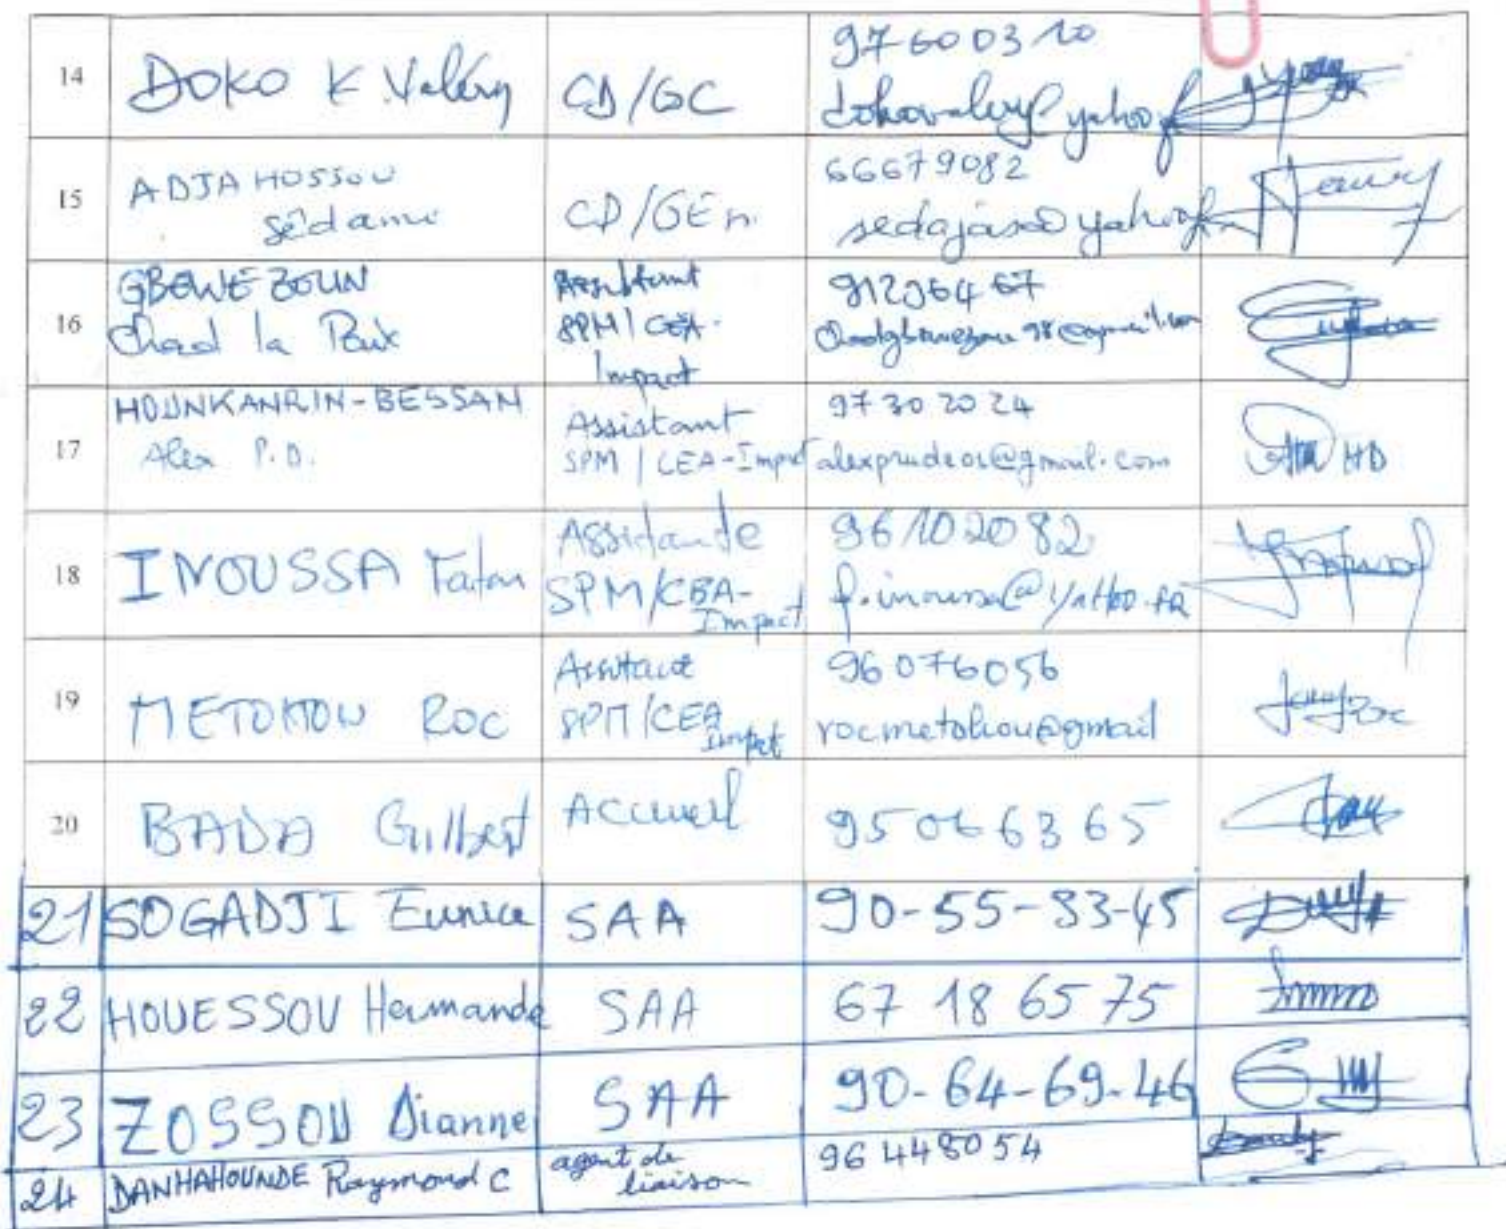 14 DOKO K. Valéry CD/GC 97600310
dokovalery@yahoo.fr
15 ADJAHOSSOU Sêdami CD/GEn. 66679082
sedajaso@yahoo.fr
16 GBEWEZOUN Chad la Paix Assistant SPM/CEA-Impact 91296467
17 HOUNKANRIN-BESSAN Alex P.D. Assistant SPM/CEA-Impact 97302024
alexprudeos@gmail.com
18 INOUSSA Fatou Assistante SPM/CEA-Impact 96102082
f.inoussa@yahoo.fr
19 METOHOU ROC Assistant SPM/CEA Impact 96076056
rocmetohou@gmail
20 BADA Gilbert Accueil 95066365
21 SOGADJI Eunice SAA 90-55-33-45
22 HOUESSOU Hermande SAA 67 18 65 75
23 ZOSSOU Dianne SAA 90-64-69-46
24 DANHAHOUNDE Raymond C agent de liaison 96448054